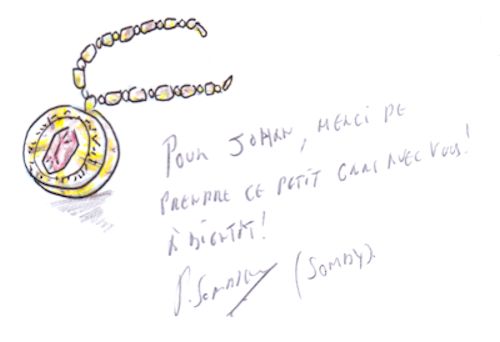 POUR JOHAN, MERCI DE
PRENDRE CE PETIT GARS AVEC VOUS!
À BIENTÔT!
(SOMDY).